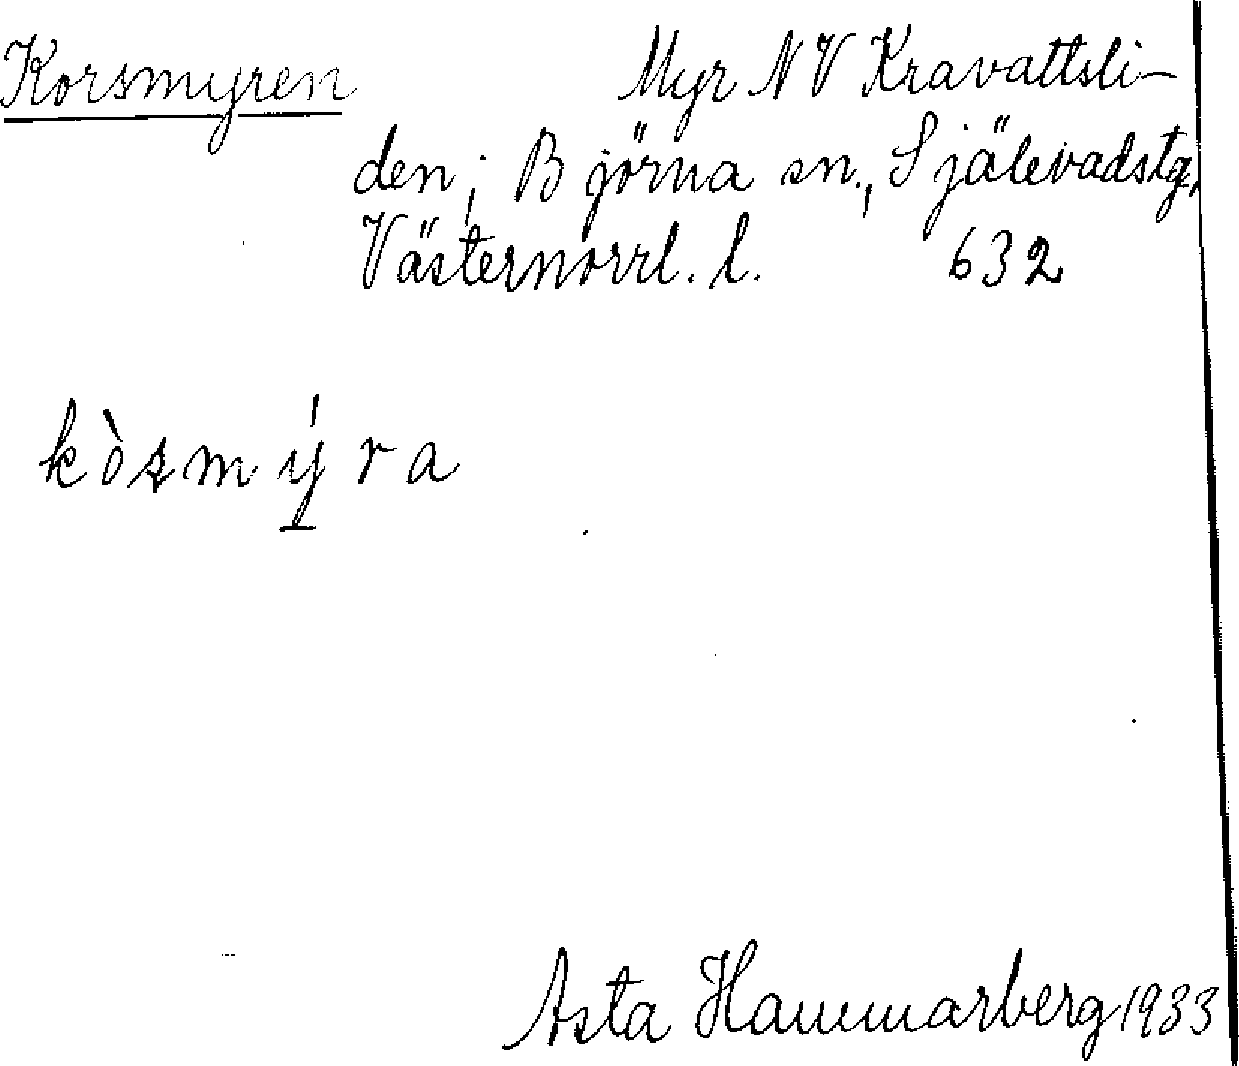 Korsmyren Myr NV Kravattsli-
den; Björna sn., Själevadstg,
Västernorrl. l. 632
kòsmýra
Asta Hammarberg 1933